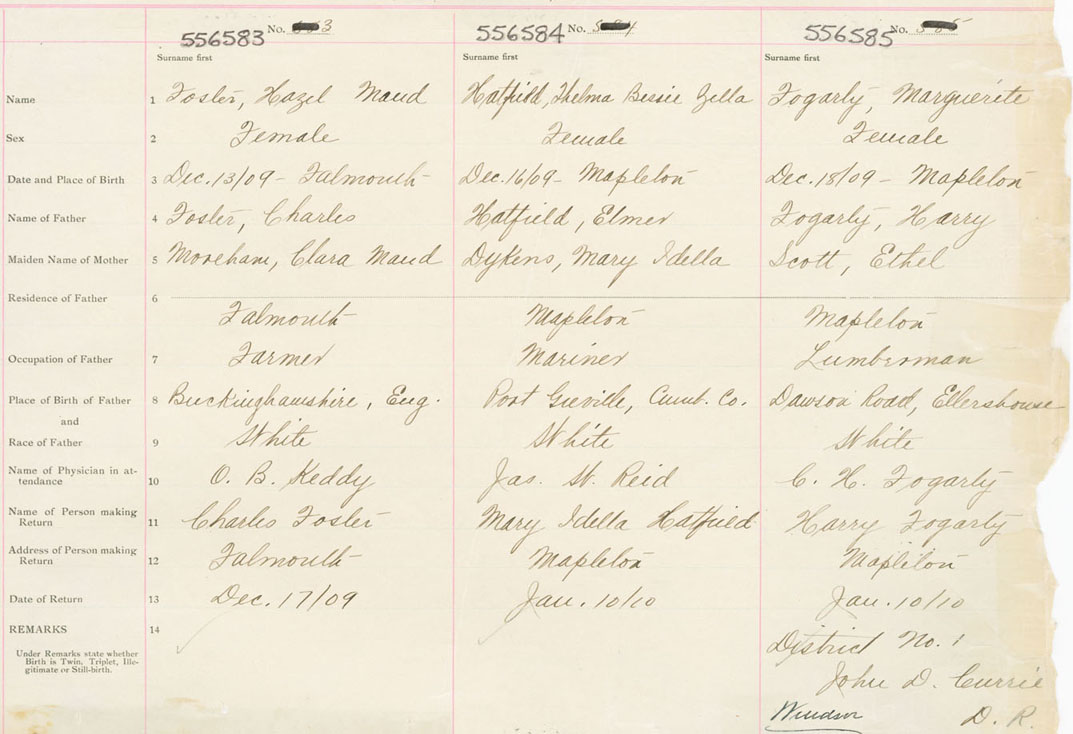 556583 No. 556584 No. 556585 No.
Surname first Surname first Surname first
Name 1 Foster, Hazel Maud Hatfield, Thelma Bessie Zella Fogarty, Marguerite
Sex 2 Female Female Female
Date and Place of Birth 3 Dec. 13/09 - Falmouth Dec. 16/09 - Mapleton Dec. 18/09 - Mapleton
Name of Father 4 Foster, Charles Hatfield, Elmer Fogarty, Harry
Maiden Name of Mother 5 Moreham, Clara Maud Dykens, Mary Idella Scott, Ethel
Residence of Father 6
Falmouth Mapleton Mapleton
Occupation of Father 7 Farmer Mariner Lumberman
Place of Birth of Father 8 Buckinghamshire, Eng. Port Greville, Cumb. Co. Dawson Road, Ellershouse
and
Race of Father 9 White White White
Name of Physician in at-
tendance 10 O. B. Keddy Jas. W. Reid C. H. Fogarty
Name of Person making
Return 11 Charles Foster Mary Idella Hatfield Harry Fogarty
Address of Person making
Return 12 Falmouth Mapleton Mapleton
Date of Return 13 Dec. 17/09 Jan. 10/10 Jan. 10/10
REMARKS 14 District No. 1
Under Remarks state whether
Birth is Twin, Triplet, Ille-
gitimate or Still-birth.
John D. Currie
Windsor D. R.